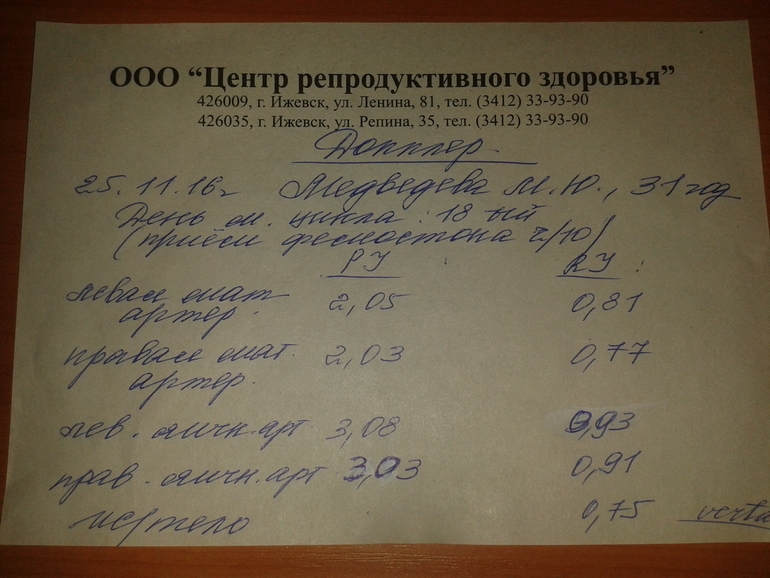 ООО “Центр репродуктивного здоровья”
426009, г. Ижевск, ул. Ленина, 81, тел. (3412) 33-93-90
426035, г. Ижевск, ул. Репина, 35, тел. (3412) 33-93-90
Допплер
25.11.16г Медведева М.Ю., 31 год
День м. цикла: 18 ый
(приём фемостона 2/10)
PY : RY :
левая мат 2,05 0,81
артер.
правая мат. 2,03 0,77
артер.
лев. яичн. арт 3,08 0,93
прав. яичн. арт 3,03 0,91
ис/тело 0,75 verte